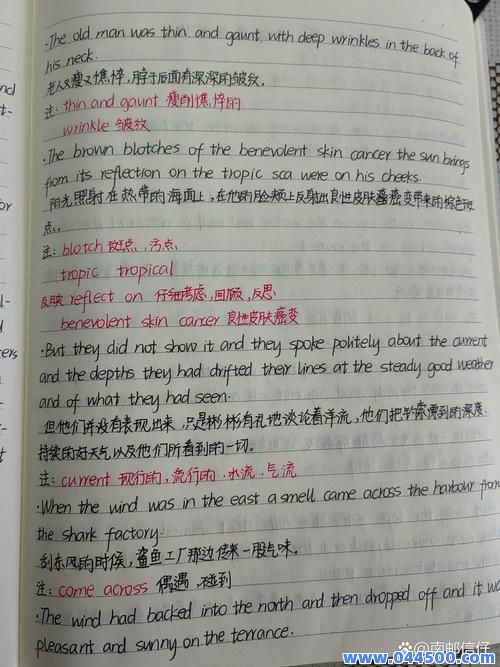 ·The old man was thin and gaunt with deep wrinkles in the back of
his neck.
老人又瘦又憔悴，脖子后面有深深的皱纹。
注：thin and gaunt 瘦削憔悴的
wrinkle 皱纹
·The brown blotches of the benevolent skin cancer the sun brings
from its reflection on the tropic sea were on his cheeks.
阳光照射在热带的海面上，在他的脸颊上反射出良性皮肤癌变带来的棕色斑
点。
注：blotch 斑点，污点
tropic tropical
反映 reflect on 仔细考虑，回顾，反思
benevolent skin cancer 良性皮肤癌变
·But they did not show it and they spoke politely about the current
and the depths they had drifted their lines at the steady good weather
and of what they had seen.
但他们并没有表现出来，只是彬彬有礼地谈论着洋流，他们把钓索漂到的深度，
持续的好天气以及他们所看到的一切。
注：current 现行的，流行的，水流，气流
·When the wind was in the east a smell came across the harbour from
the shark factory.
刮东风的时候，鲨鱼工厂那边传来一股气味。
注：come across 偶遇，碰到
·The wind had backed into the north and then dropped off and it wa
pleasant and sunny on the terrance.
知乎 @南邮信仔
www.044500.com